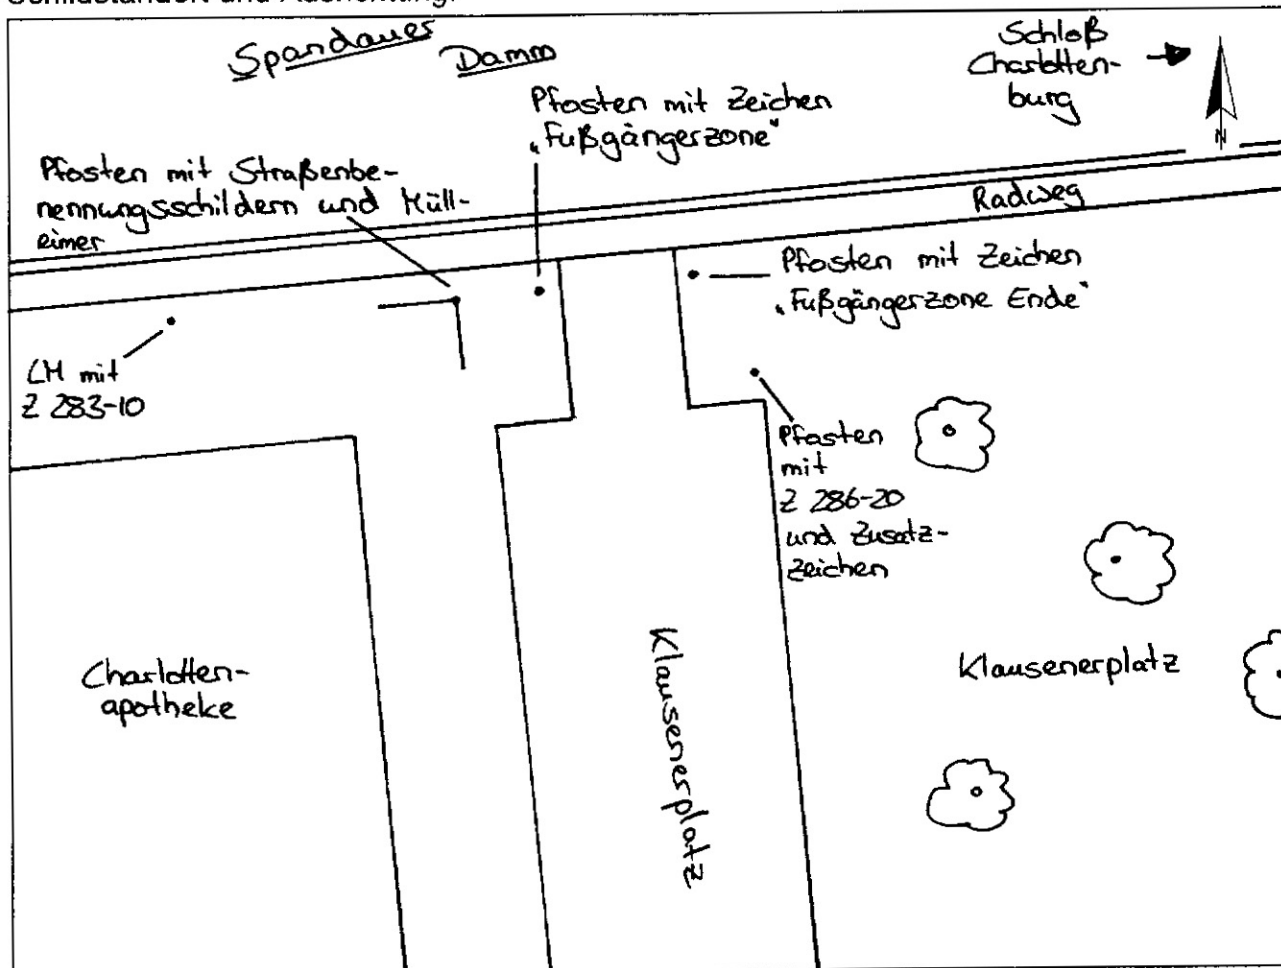 Schildstandort und Ausrichtung:
Spandauer Damm
Schloß
Charlotten-
burg
N
Pfosten mit Zeichen
„Fußgängerzone“
Pfosten mit Straßenbe-
nennungsschildern und Müll-
eimer
Radweg
Pfosten mit Zeichen
„Fußgängerzone Ende“
LM mit
Z 283-10
Pfosten
mit
Z 286-20
und Zusatz-
zeichen
Charlotten-
apotheke
Klausenerplatz
Klausenerplatz